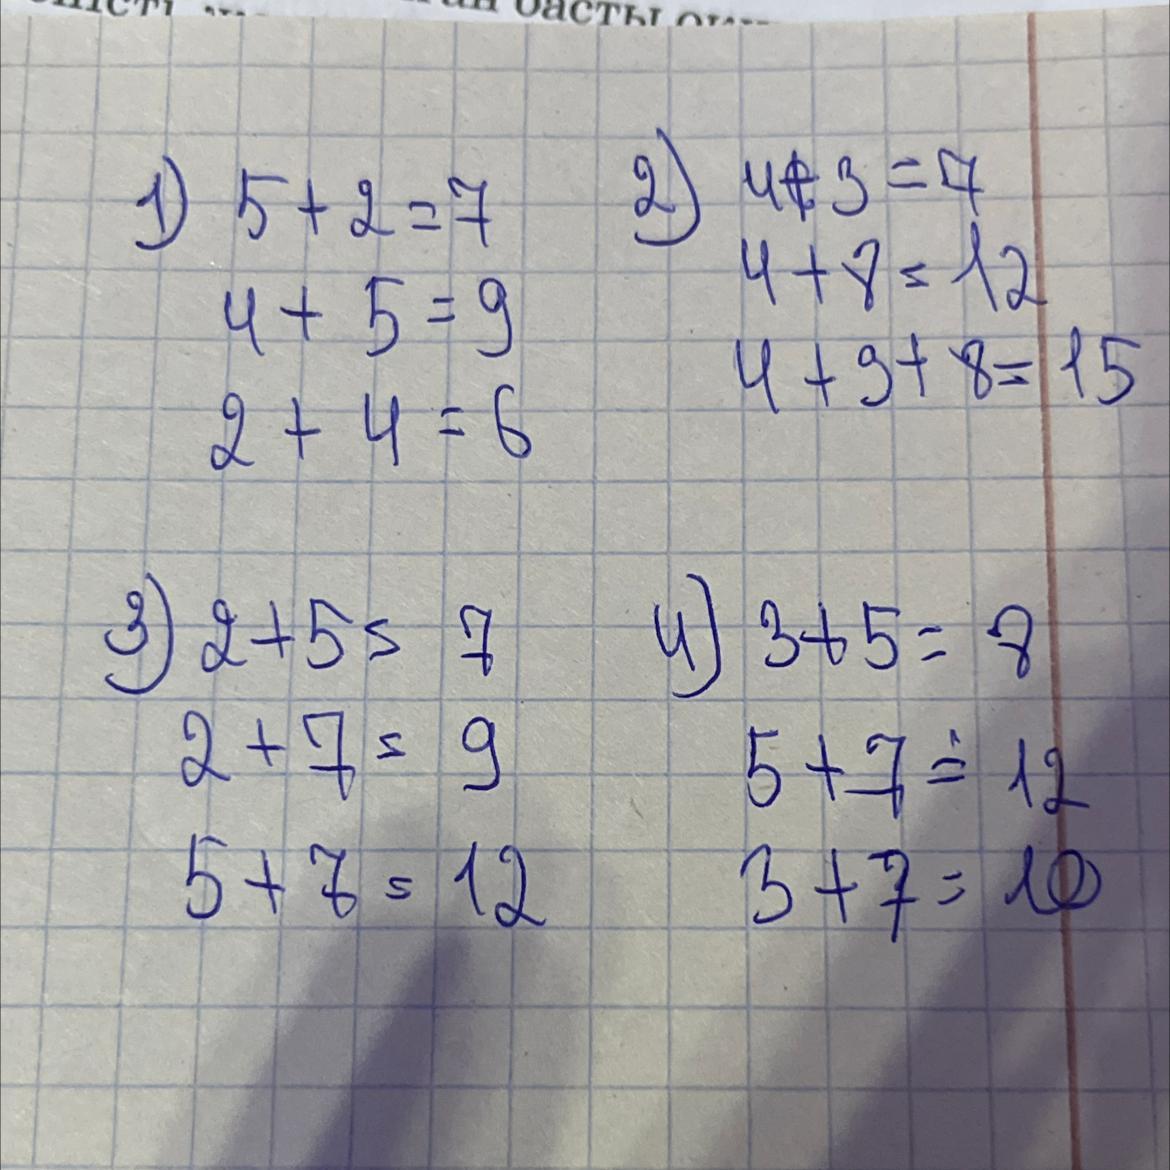 басты
1) 5+2=7
4+5=9
2+4=6
2) 4+3=7
4+8=12
4+3+8=15
3) 2+5=7
2+7=9
5+7=12
4) 3+5=8
5+7=12
3+7=10